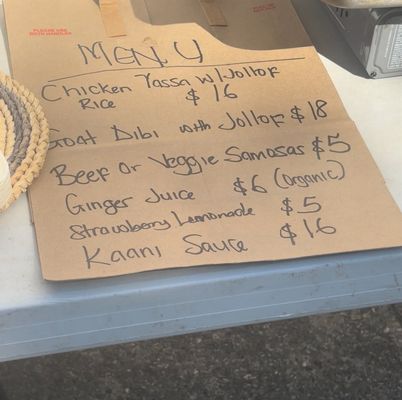 MENU
Chicken Yassa w/ Jollof
Rice $16
Goat Dibi with Jollof $18
Beef or Veggie Samosas $5
Ginger Juice $6 (organic)
Strawberry Lemonade $5
Kaani Sauce $16